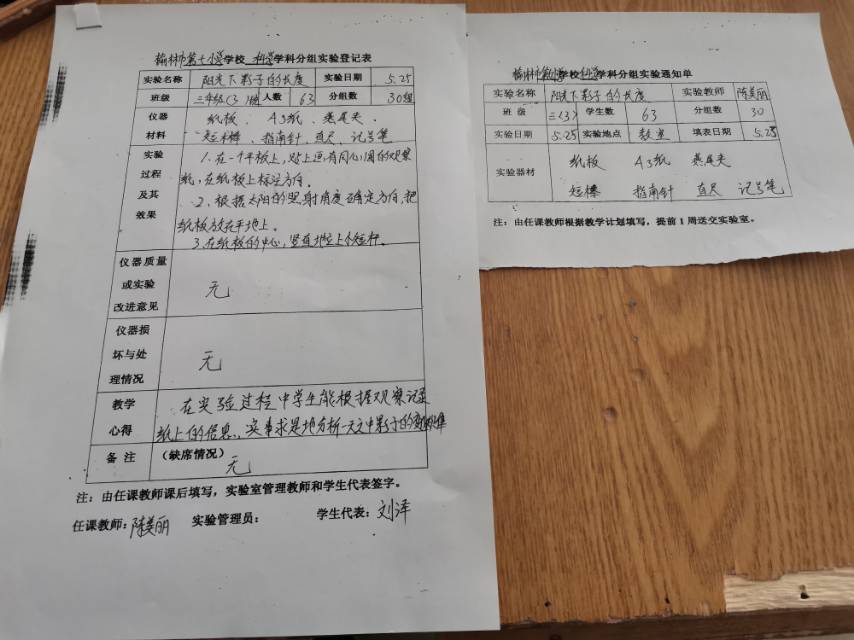 榆林市第十小学学校 科学学科分组实验登记表
实验名称 阳光下影子的长度 实验日期 5.25
班级 三年级(3)班 人数 63 分组数 30组
仪器 纸板、A3纸、燕尾夹、
材料 短棒、指南针、直尺、记号笔
实验 1.在一个平板上,贴上画有同心圆的观察
过程 纸,在纸板上标注方向。
及其 2、根据太阳的照射角度确定方向,把
效果 纸板放在平地上。
3.在纸板的中心,竖直地立上个短杆。
仪器质量
或实验 无
改进意见
仪器损
坏与处 无
理情况
教学 在实验过程中学生能根据观察记录
心得 纸上的信息,实事求是地分析一天之中影子的变化规律
备注 (缺席情况) 无
注:由任课教师课后填写,实验室管理教师和学生代表签字。
任课教师:陈美丽 实验管理员: 学生代表:刘洋
榆林市 学校 科学学科分组实验通知单
实验名称 阳光下影子的长度 实验教师 陈美丽
班 级 三(3) 学生数 63 分组数 30
实验日期 5.25 实验地点 教室 填表日期 5.25
实验器材 纸板 A3纸 燕尾夹
短棒 指南针 直尺 记号笔
注:由任课教师根据教学计划填写,提前1周送交实验室。